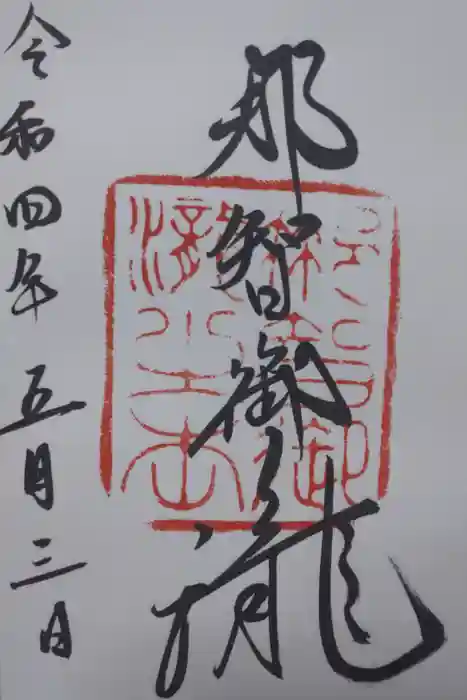 那智御瀧
令和四年 五月三日